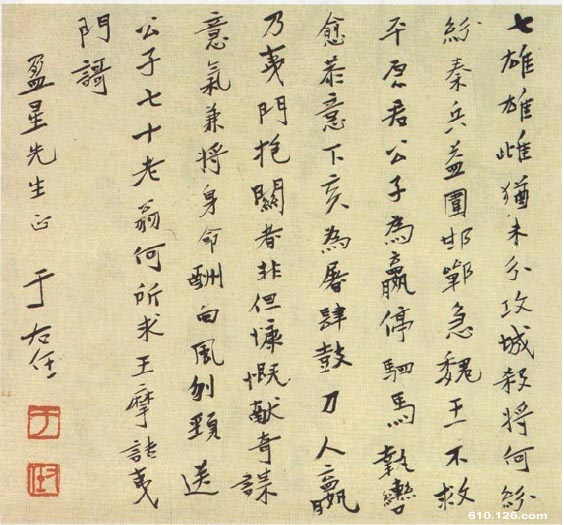 七雄雄雌猶未分攻城殺將何紛
紛秦兵益圍邯鄲急魏王不救
平原君公子為嬴停駟馬執轡
愈恭意下亥為屠肆鼓刀人嬴
乃夷門抱關者非但慷慨獻奇謀
意氣兼將身命酬向風刎頸送
公子七十老翁何所求王摩詰夷
門謌
盈星先生正 于右任
于
610.126.com